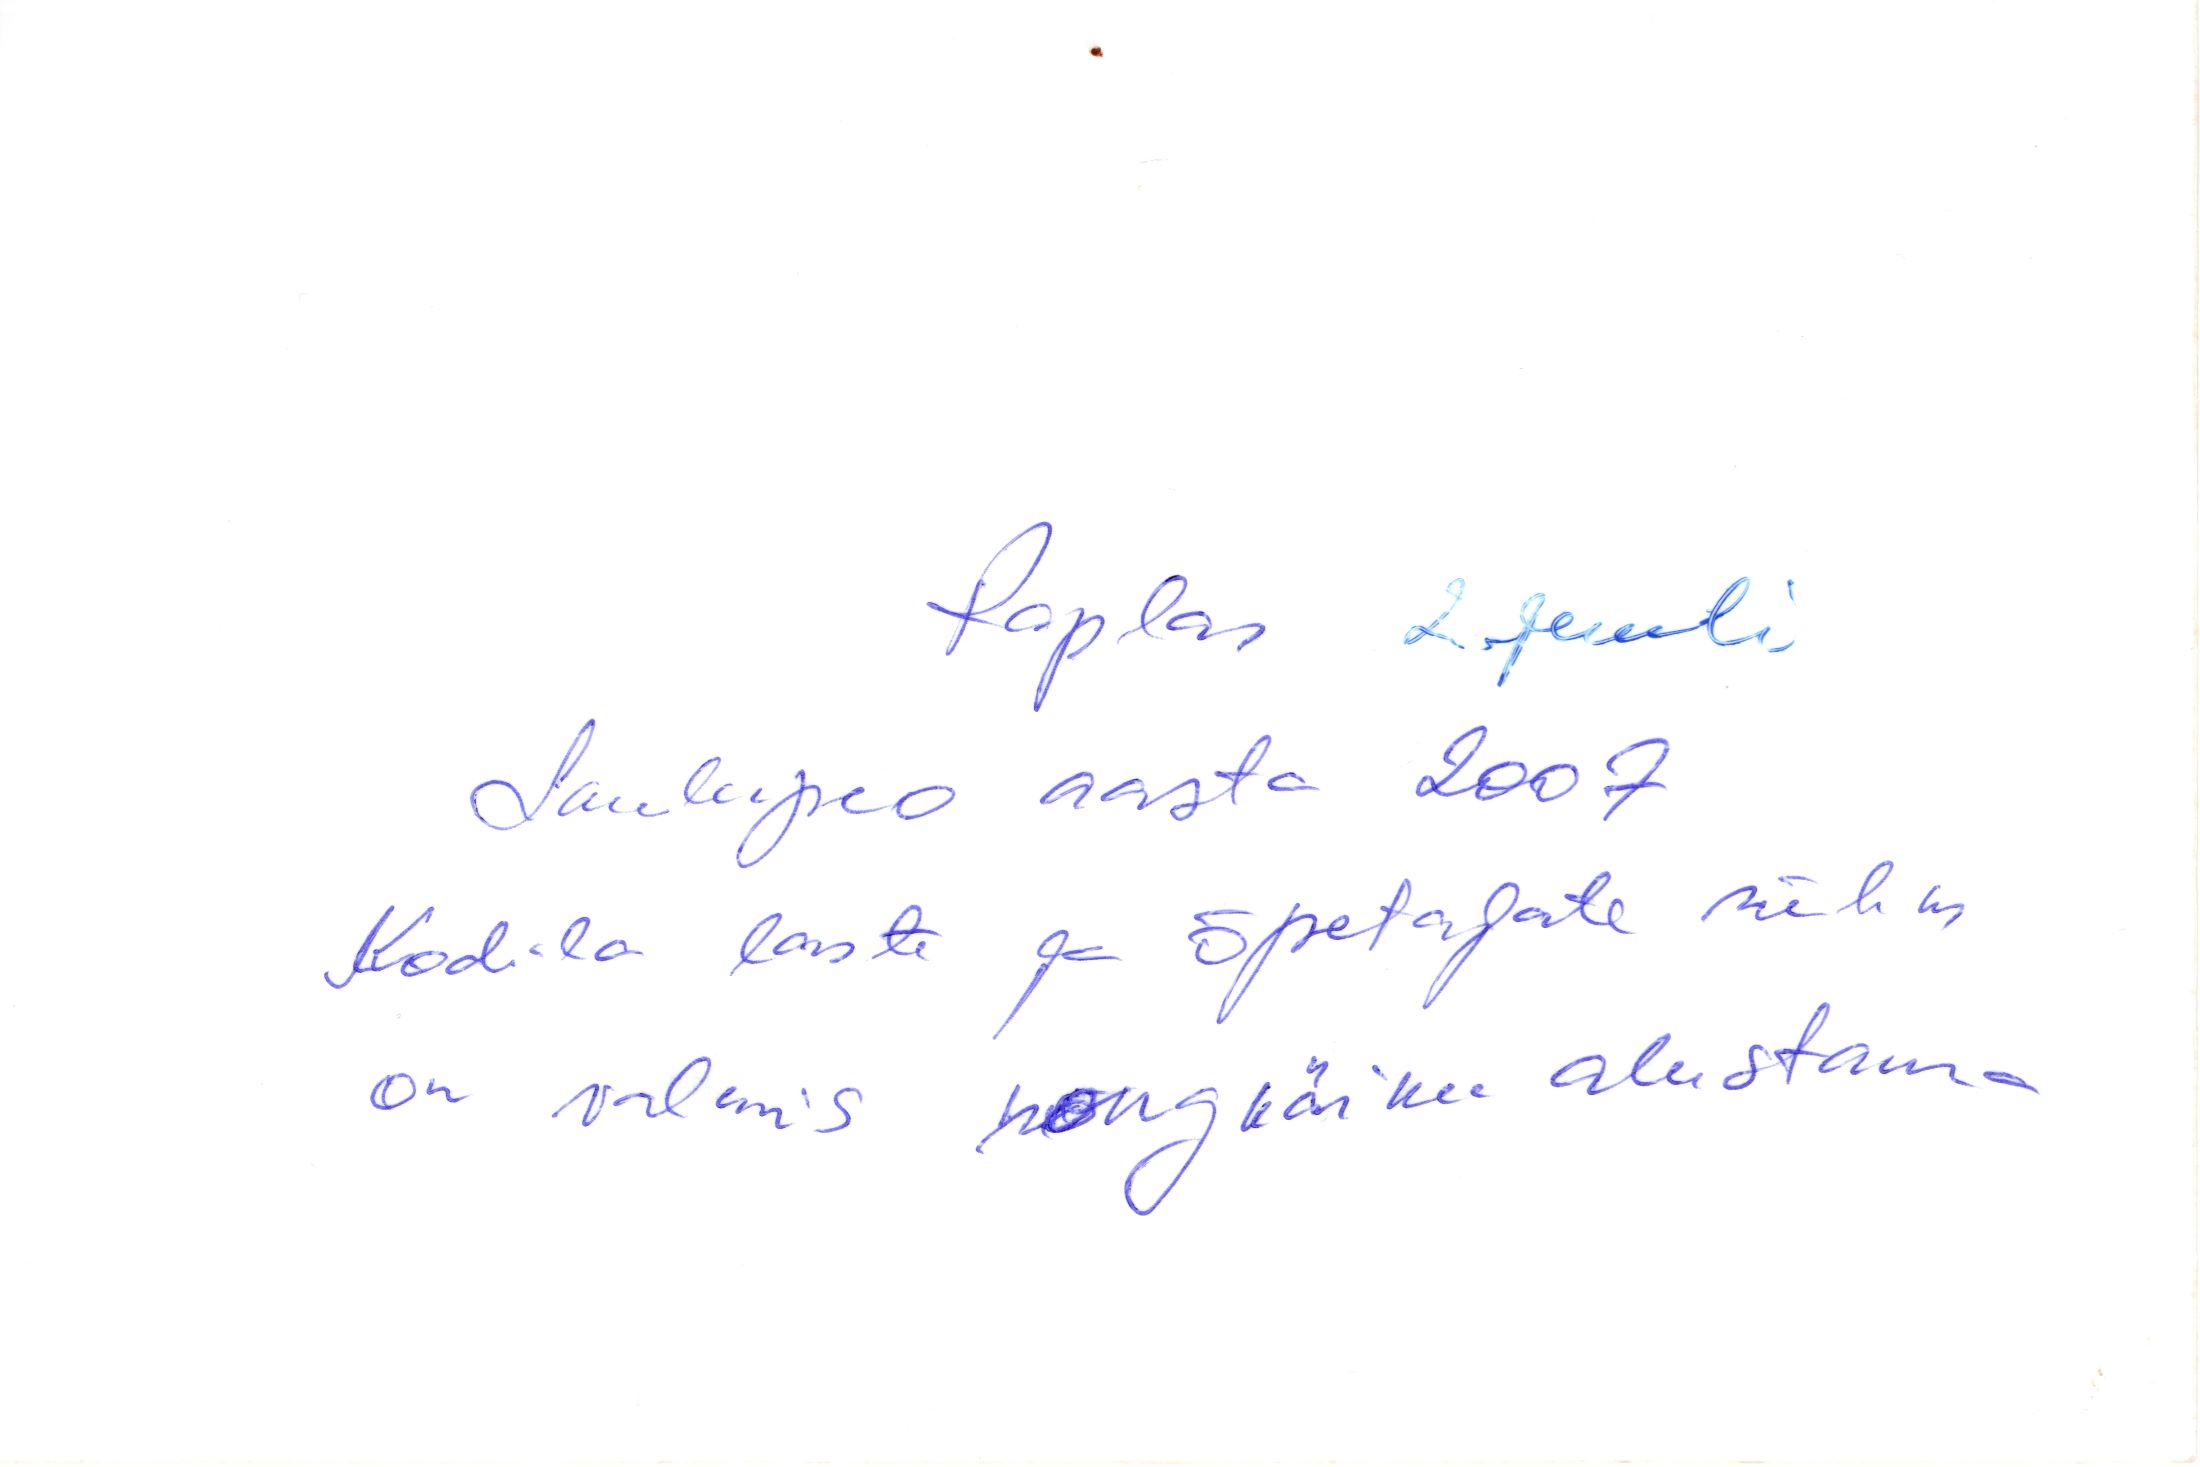 Raplas 2. juuli
Laulupeo aasta 2007
Kodila laste ja õpetajate rühm
on valmis rongkäiku alustama